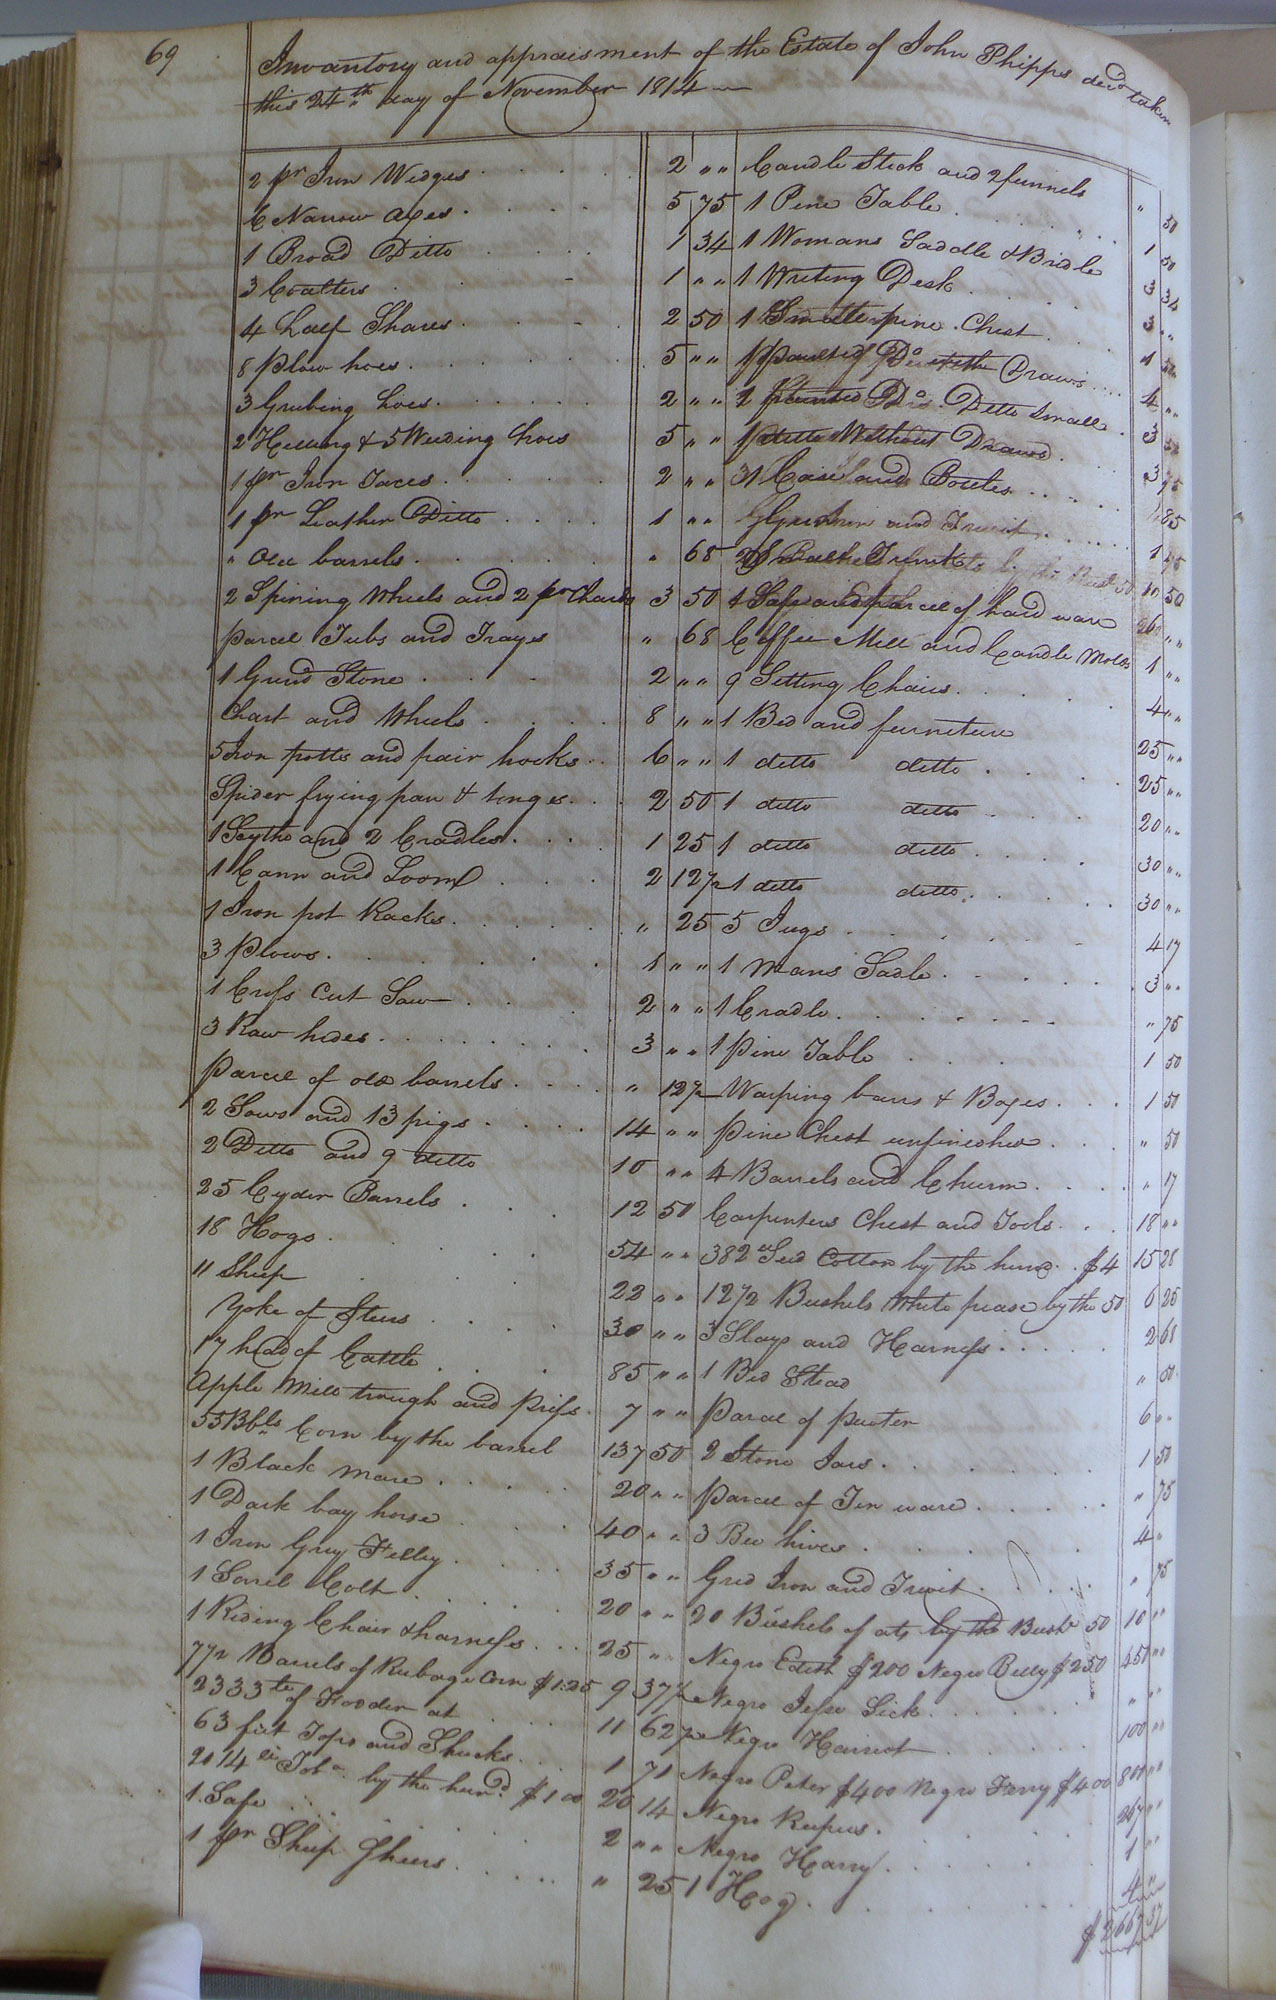 69
Invantory and appraisment of the Estate of John Phipps decd taken
this 24th day of November 1814
2 pr Iron Wedges 2 " "
6 Narrow axes 5 75
1 Broad Ditto 1 34
3 Coalters 1 " "
4 half Shares 2 50
8 plow hoes 5 " "
3 Grubing hoes 2 " "
2 Hilling & 5 Weeding hoes 5 " "
1 pr Iron Traces 2 " "
1 pr Leather Ditto 1 " "
" Old barrels " 68
2 Spining Wheels and 2 pr Chards 3 50
parcel Tubs and Trays " 68
1 Grind Stone 2 " "
Chart and Wheels 8 " "
5 Iron potts and pair hooks 6 " "
Spider frying pan & tonges 2 50
1 Scythe and 2 Cradles 1 25
1 Cann and Loom 2 12 1/2
1 Iron pot Racks " 25
3 plows 1 " "
1 Cross Cut Saw 2 " "
3 Raw hides 3 " "
parcel of old barrels " 12 1/2
2 Sows and 13 pigs 14 " "
2 Ditto and 9 ditto 10 " "
25 Cyder Barrels 12 50
18 Hogs 54 " "
11 Sheep 22 " "
Yoke of Steers 30 " "
17 head of Cattle 85 " "
Apple Mill trough and Press 7 " "
55 Bbls Corn by the barrel 137 50
1 Black mare 20 " "
1 Dark bay horse 40 " "
1 Iron Grey Filley 35 " "
1 Sorril Colt 20 " "
1 Riding Chair & harness 25 " "
7 1/2 Barrels of Rubage Corn $1.25 9 37 1/2
2333 of Fodder at 11 62 1/2
63 feet Tops and Shucks 1 71
2014 Tobo by the hund $1 00 20 14
1 Safe 2 " "
1 pr Sheep Shears " 25
Candle Stick and 2 funnels " 50
1 Pine Table 1 50
1 Womans Saddle & Bridle 3 34
1 Writing Desk 3 " "
1 Small pine Chest 1
Do with Draws 4 " "
Do Ditto Small 3
Without Draws 3 75
Case and Bottles 85
and Trivit 1
10 50
Safe and parcel of hard ware 26 " "
Coffee Mill and Candle Molds 1 " "
9 Setting Chairs 4 " "
1 Bed and furniture 25 " "
1 ditto ditto 25 " "
1 ditto ditto 20 " "
1 ditto ditto 30 " "
1 ditto ditto 30 " "
5 Jugs 4 17
1 Mans Sadle 3 " "
1 Cradle " 75
1 Pine Table 1 50
Warping bars & Boxes 1 50
Pine Chest unfinished " 50
4 Barrels and Churm " 17
Carpenters Chest and Tools 18 " "
382 Seed Cotton by the hund $4 15 28
12 1/2 Bushels White pease by the 50 6 25
3 Slays and Harness 2 68
1 Bed Stead " 50
Parcel of puter 6 " "
2 Stone Jars 1 50
Parcel of Tin ware " 75
3 Bee hives 4 "
Grid Iron and Trivit " 75
20 Bushels of oats by the Bushl 50 10 " "
Negro Edith $200 Negro Billy $250 450 " "
Negro Jesse Sick " " "
Negro Harriot 100 " "
Negro Peter $400 Negro Fanny $400 800 " "
Negro Rufus 267 " "
Negro Harry 1 "
1 Hog 4 "
$2667 37